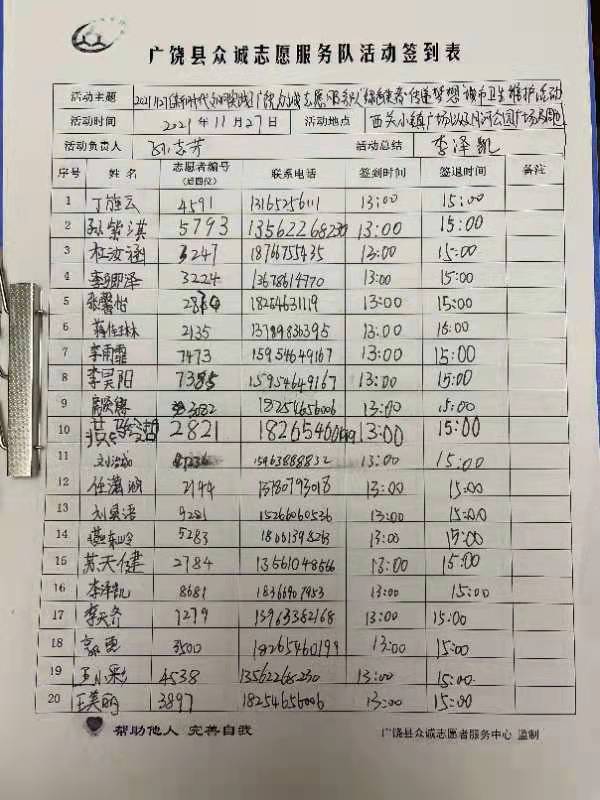 广饶县众诚志愿服务队活动签到表
活动主题 广饶众诚志愿服务队"绿色使者·传递梦想"城市卫生维护活动
活动时间 2021年11月27日 活动地点 西关小镇广场以及月河公园广场周边
活动负责人 孙志芳 活动总结 李泽凯
序号 姓名 志愿者编号(后四位) 联系电话 签到时间 签退时间 备注
1 4591 13165256111 13:00 15:00
2 孙紫淇 5793 13562268230 13:00 15:00
3 杜汝涵 3247 18766755435 13:00 15:00
4 李卿泽 3224 13678614770 13:00 15:00
5 张馨怡 18254631119 13:00 15:00
6 2135 13789836395 13:00
7 李雨霏 7473 15954649167 13:00 15:00
8 李昊阳 7385 15954649167 13:00 15:00
9 3682 18254656006 13:00 15:00
10 2821 13:00 15:00
11 15963888832 13:00 15:00
12 任潇涵 2194 13780793018 13:00 15:00
13 9281 15266060536 13:00 15:00
14 5283 18661398263 13:00 15:00
15 苏天健 2784 13561048666 13:00 15:00
16 李泽凯 8681 18366907953 13:00 15:00
17 李天齐 1279 15963382168 13:00 15:00
18 3500 18265460199 13:00 15:00
19 王小彩 4538 13562268230 13:00 15:00
20 王美鸥 3897 18254656006 13:00 15:00
帮助他人 完善自我
广饶县众诚志愿者服务中心 监制